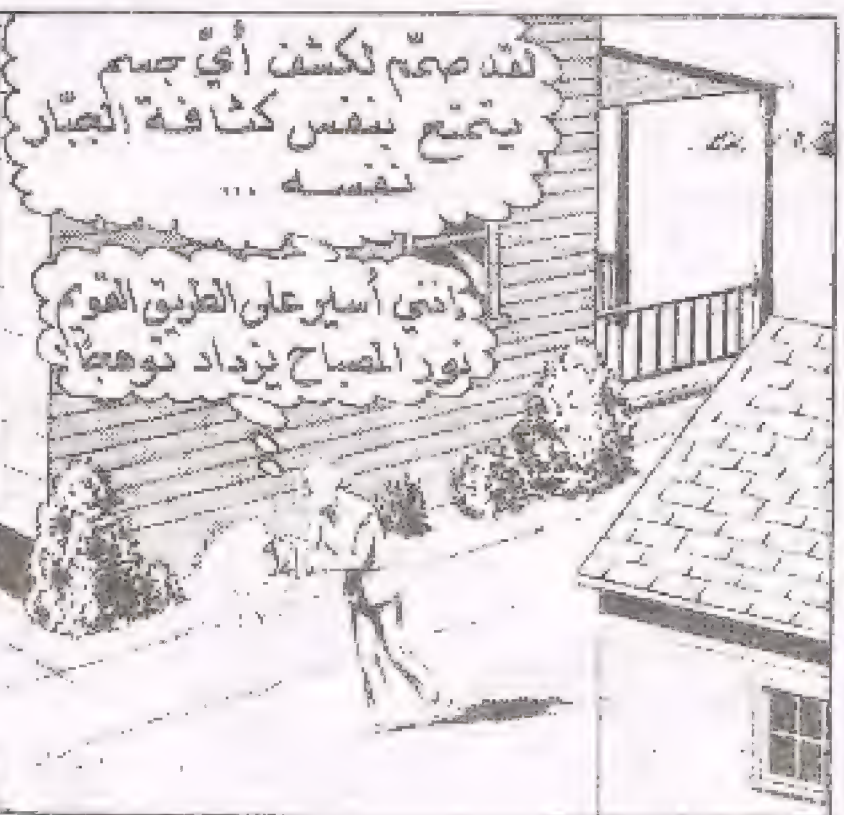 لقد صمّم لكشف أيّ جسم
يتمتّع بنفس كثافة الجبّار
نفسه ...
إنني أسير على الطريق القويم
نور المصباح يزداد توهجًا